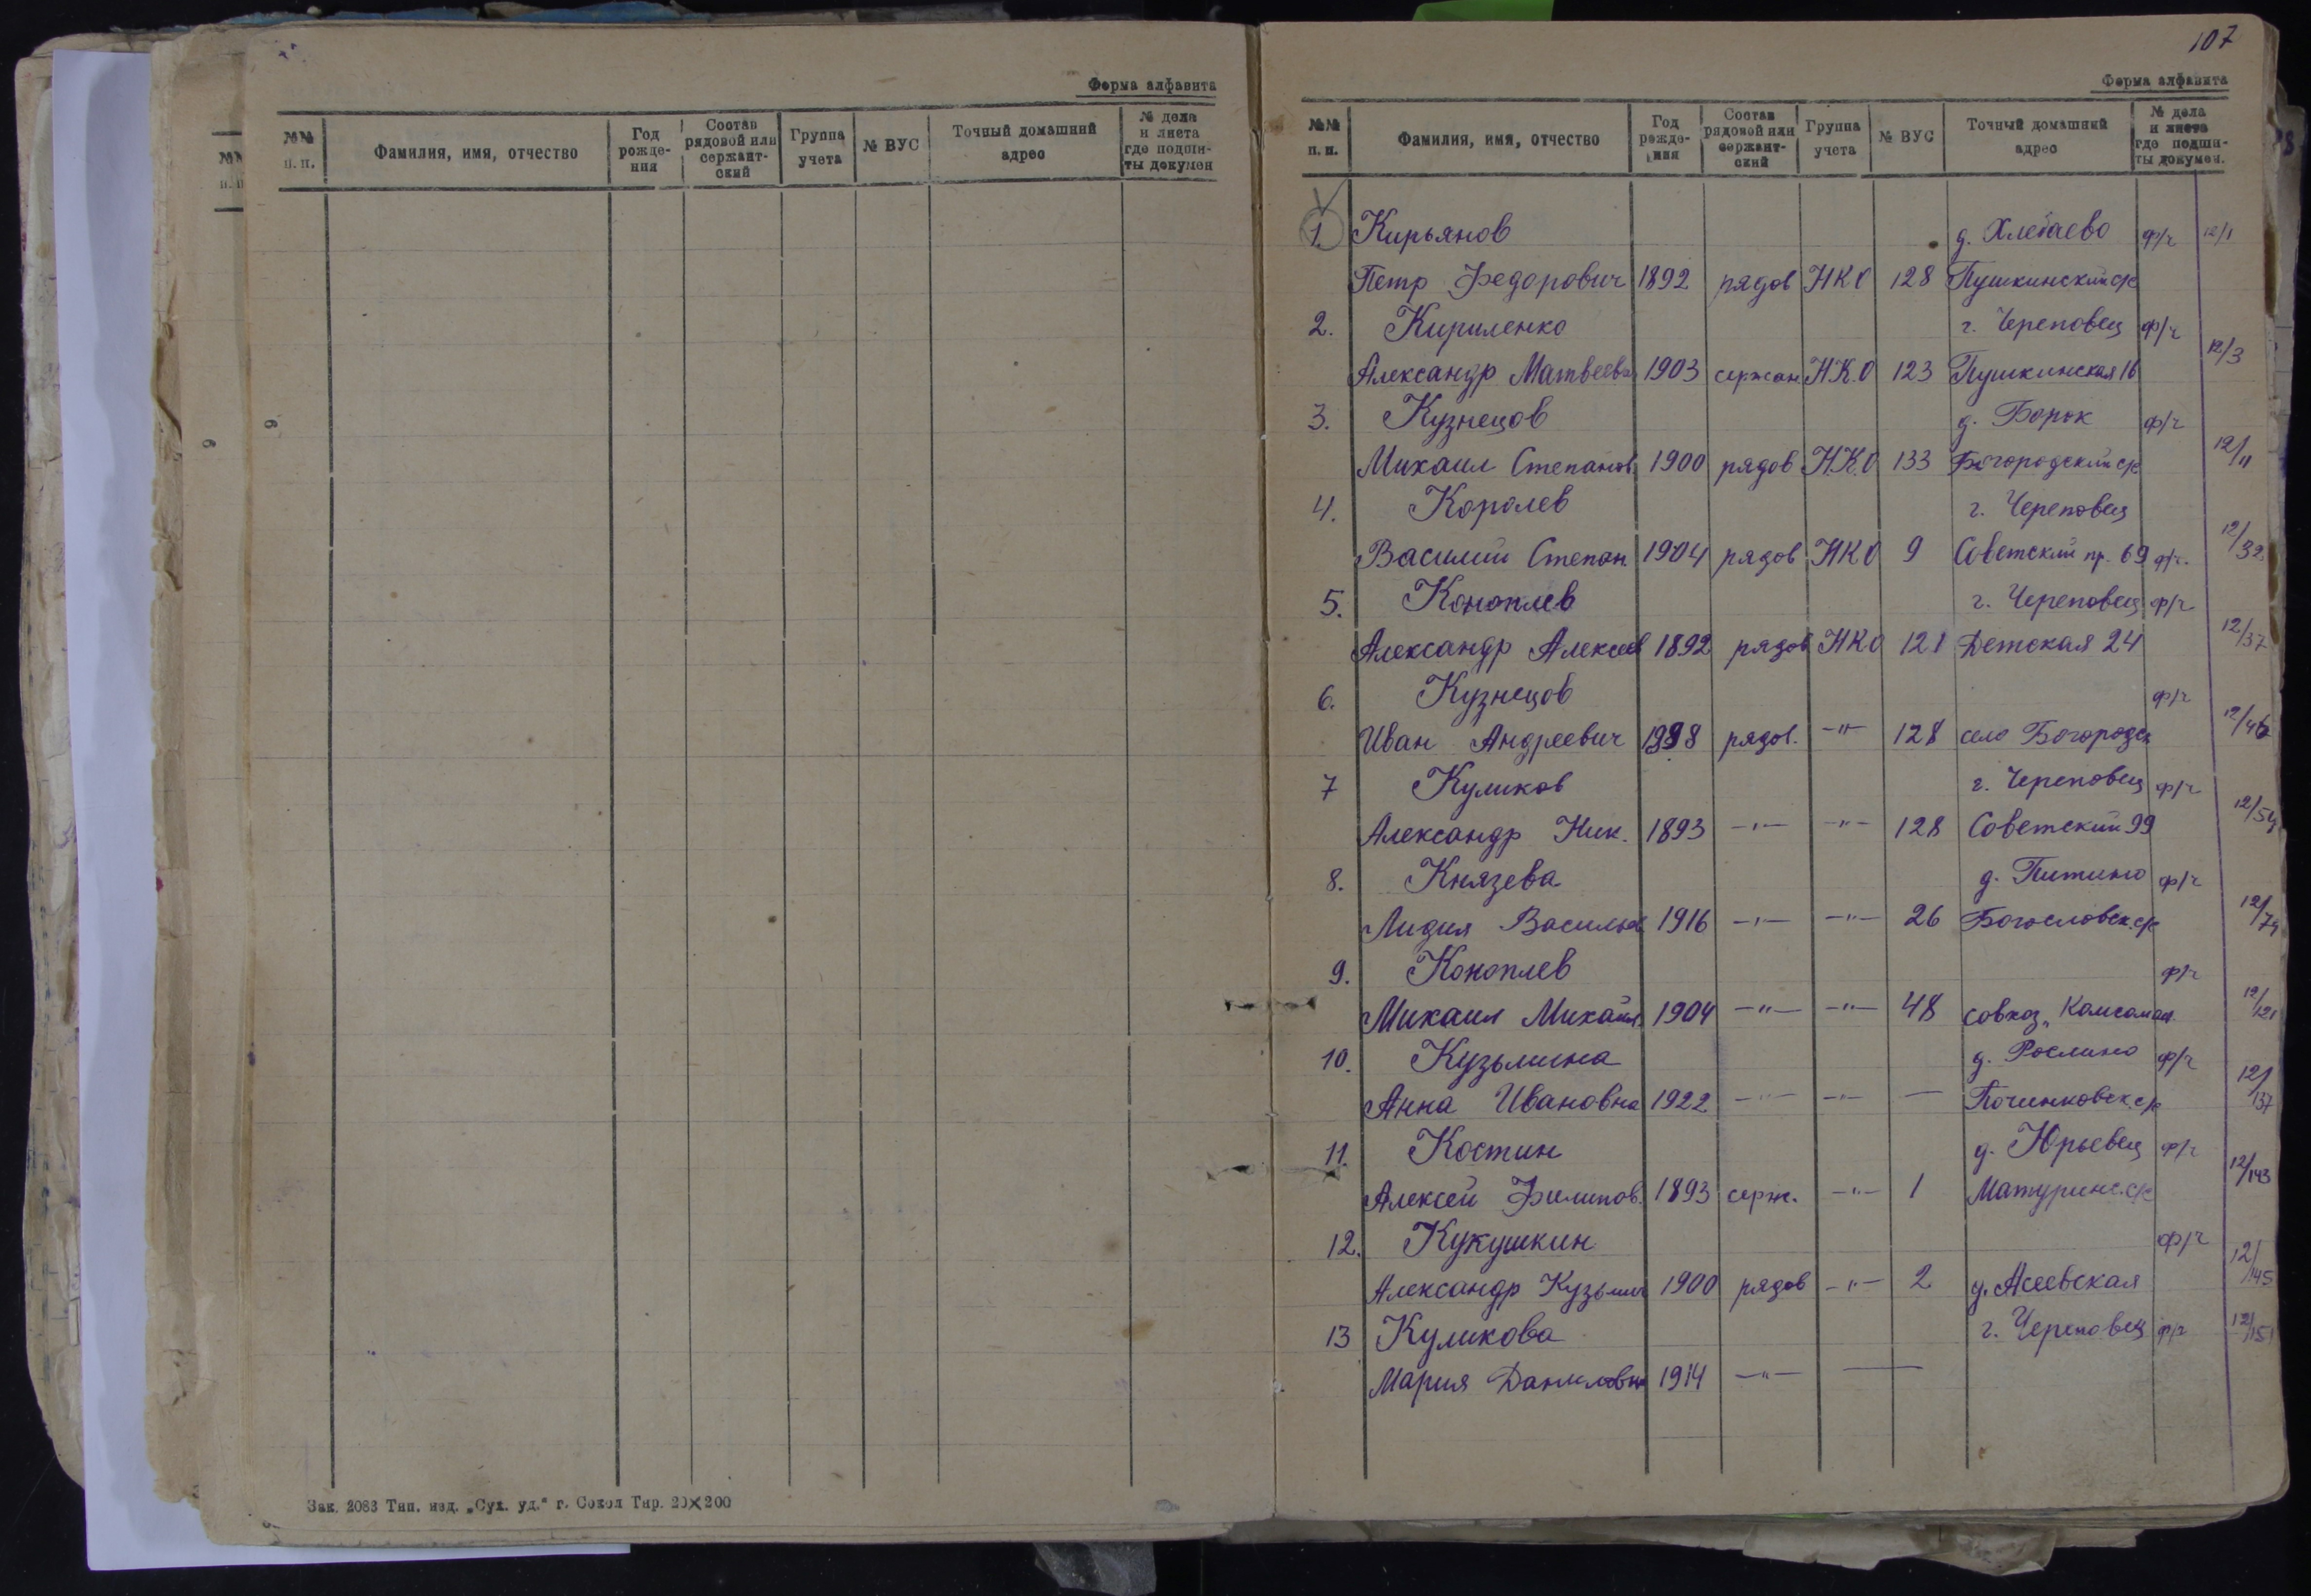 Форма алфавита
№№ п. п. Фамилия, имя, отчество Год рожде- ния Состав рядовой или сержант- ский Группа учета № ВУС Точный домашний адрес № дела и листа где подши- ты докумен
6
6
Зак. 2083 Тип. изд. „Сух. уд.“ г. Сокол Тир. 20×200
107
Форма алфавита
№№ п. п. Фамилия, имя, отчество Год рожде- ния Состав рядовой или сержант- ский Группа учета № ВУС Точный домашний адрес № дела и листа где подши- ты докумен.
1. Кирьянов д. Хлебаево ф/ч 12/1
Петр Федорович 1892 рядов НКО 128 Пушкинский с/с
2. Кириленко г. Череповец ф/ч 12/3
Александр Матвеев 1903 сержан Н.К.О 123 Пушкинская 16
3. Кузнецов д. Борок ф/ч 12/11
Михаил Степанов 1900 рядов Н.К.О 133 Богородский с/с
4. Королев г. Череповец 12/32
Василий Степан 1904 рядов НКО 9 Советский пр. 69 ф/ч.
5. Коноплев г. Череповец ф/ч 12/37
Александр Алексеев 1892 рядов НКО 121 Детская 24
6. Кузнецов ф/ч 12/46
Иван Андреевич рядов. -"- 128 село Богородск
7 Куликов г. Череповец ф/ч 12/54
Александр Ник. 1893 -"- -"- 128 Советский 99
8. Князева д. Питино ф/ч 12/74
Лидия Васильев 1916 -"- -"- 26 Богословск. с/с
9. Коноплев ф/ч 12/121
Михаил Михайл 1904 -"- -"- 48 совхоз „Комсомол
10. Кузьмина д. Рослино ф/ч 12/137
Анна Ивановна 1922 -"- -"- — Починковск. с/с
11. Костин д. Юрьевец ф/ч 12/143
Алексей Филипов. 1893 серж. -"- 1 Матуринс. с/с
12. Кукушкин ф/ч 12/145
Александр Кузьмич 1900 рядов -"- 2 д. Асеевская
13 Куликова г. Череповец ф/ч 12/151
Мария Даниловна 1914 -"- —